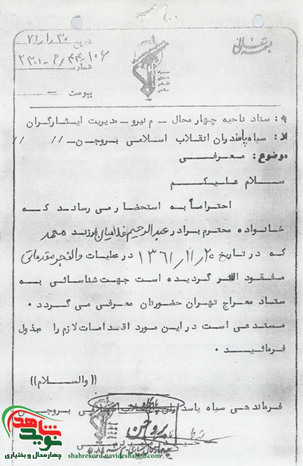 بسمه تعالی
تاریخ
شماره
پیوست
به : ستاد ناحیه چهار محال – م نیرو – مدیریت ایثارگران
از : سپاه پاسداران انقلاب اسلامی بروجن – // //
موضوع : معرفی
سلام علیکم
احتراماً به استحضار می رساند که
خانواده محترم برادر عبدالرحیم فرزند محمد
که در تاریخ ۱۳۶۱/۱۱/۲۰ در عملیات والفجر مقدماتی
مفقود الاثر گردیده است جهت شناسائی به
ستاد معراج تهران حضورتان معرفی می گردد .
مستدعی است در این مورد اقدامات لازم را مبذول
فرمائید .
((والسلام))
فرماندهی سپاه پاسداران انقلاب اسلامی بروجن
نوید شاهد
چهارمحال و بختیاری
shahrekord.navideshahed.com